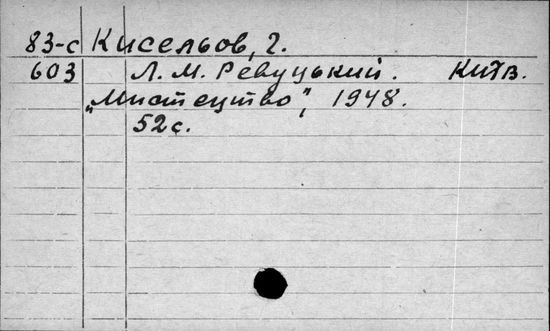 83-с Кисельов, Г.
603 Л. М. Ревуцький. Київ.
„Мистецтво", 1948.
52 с.